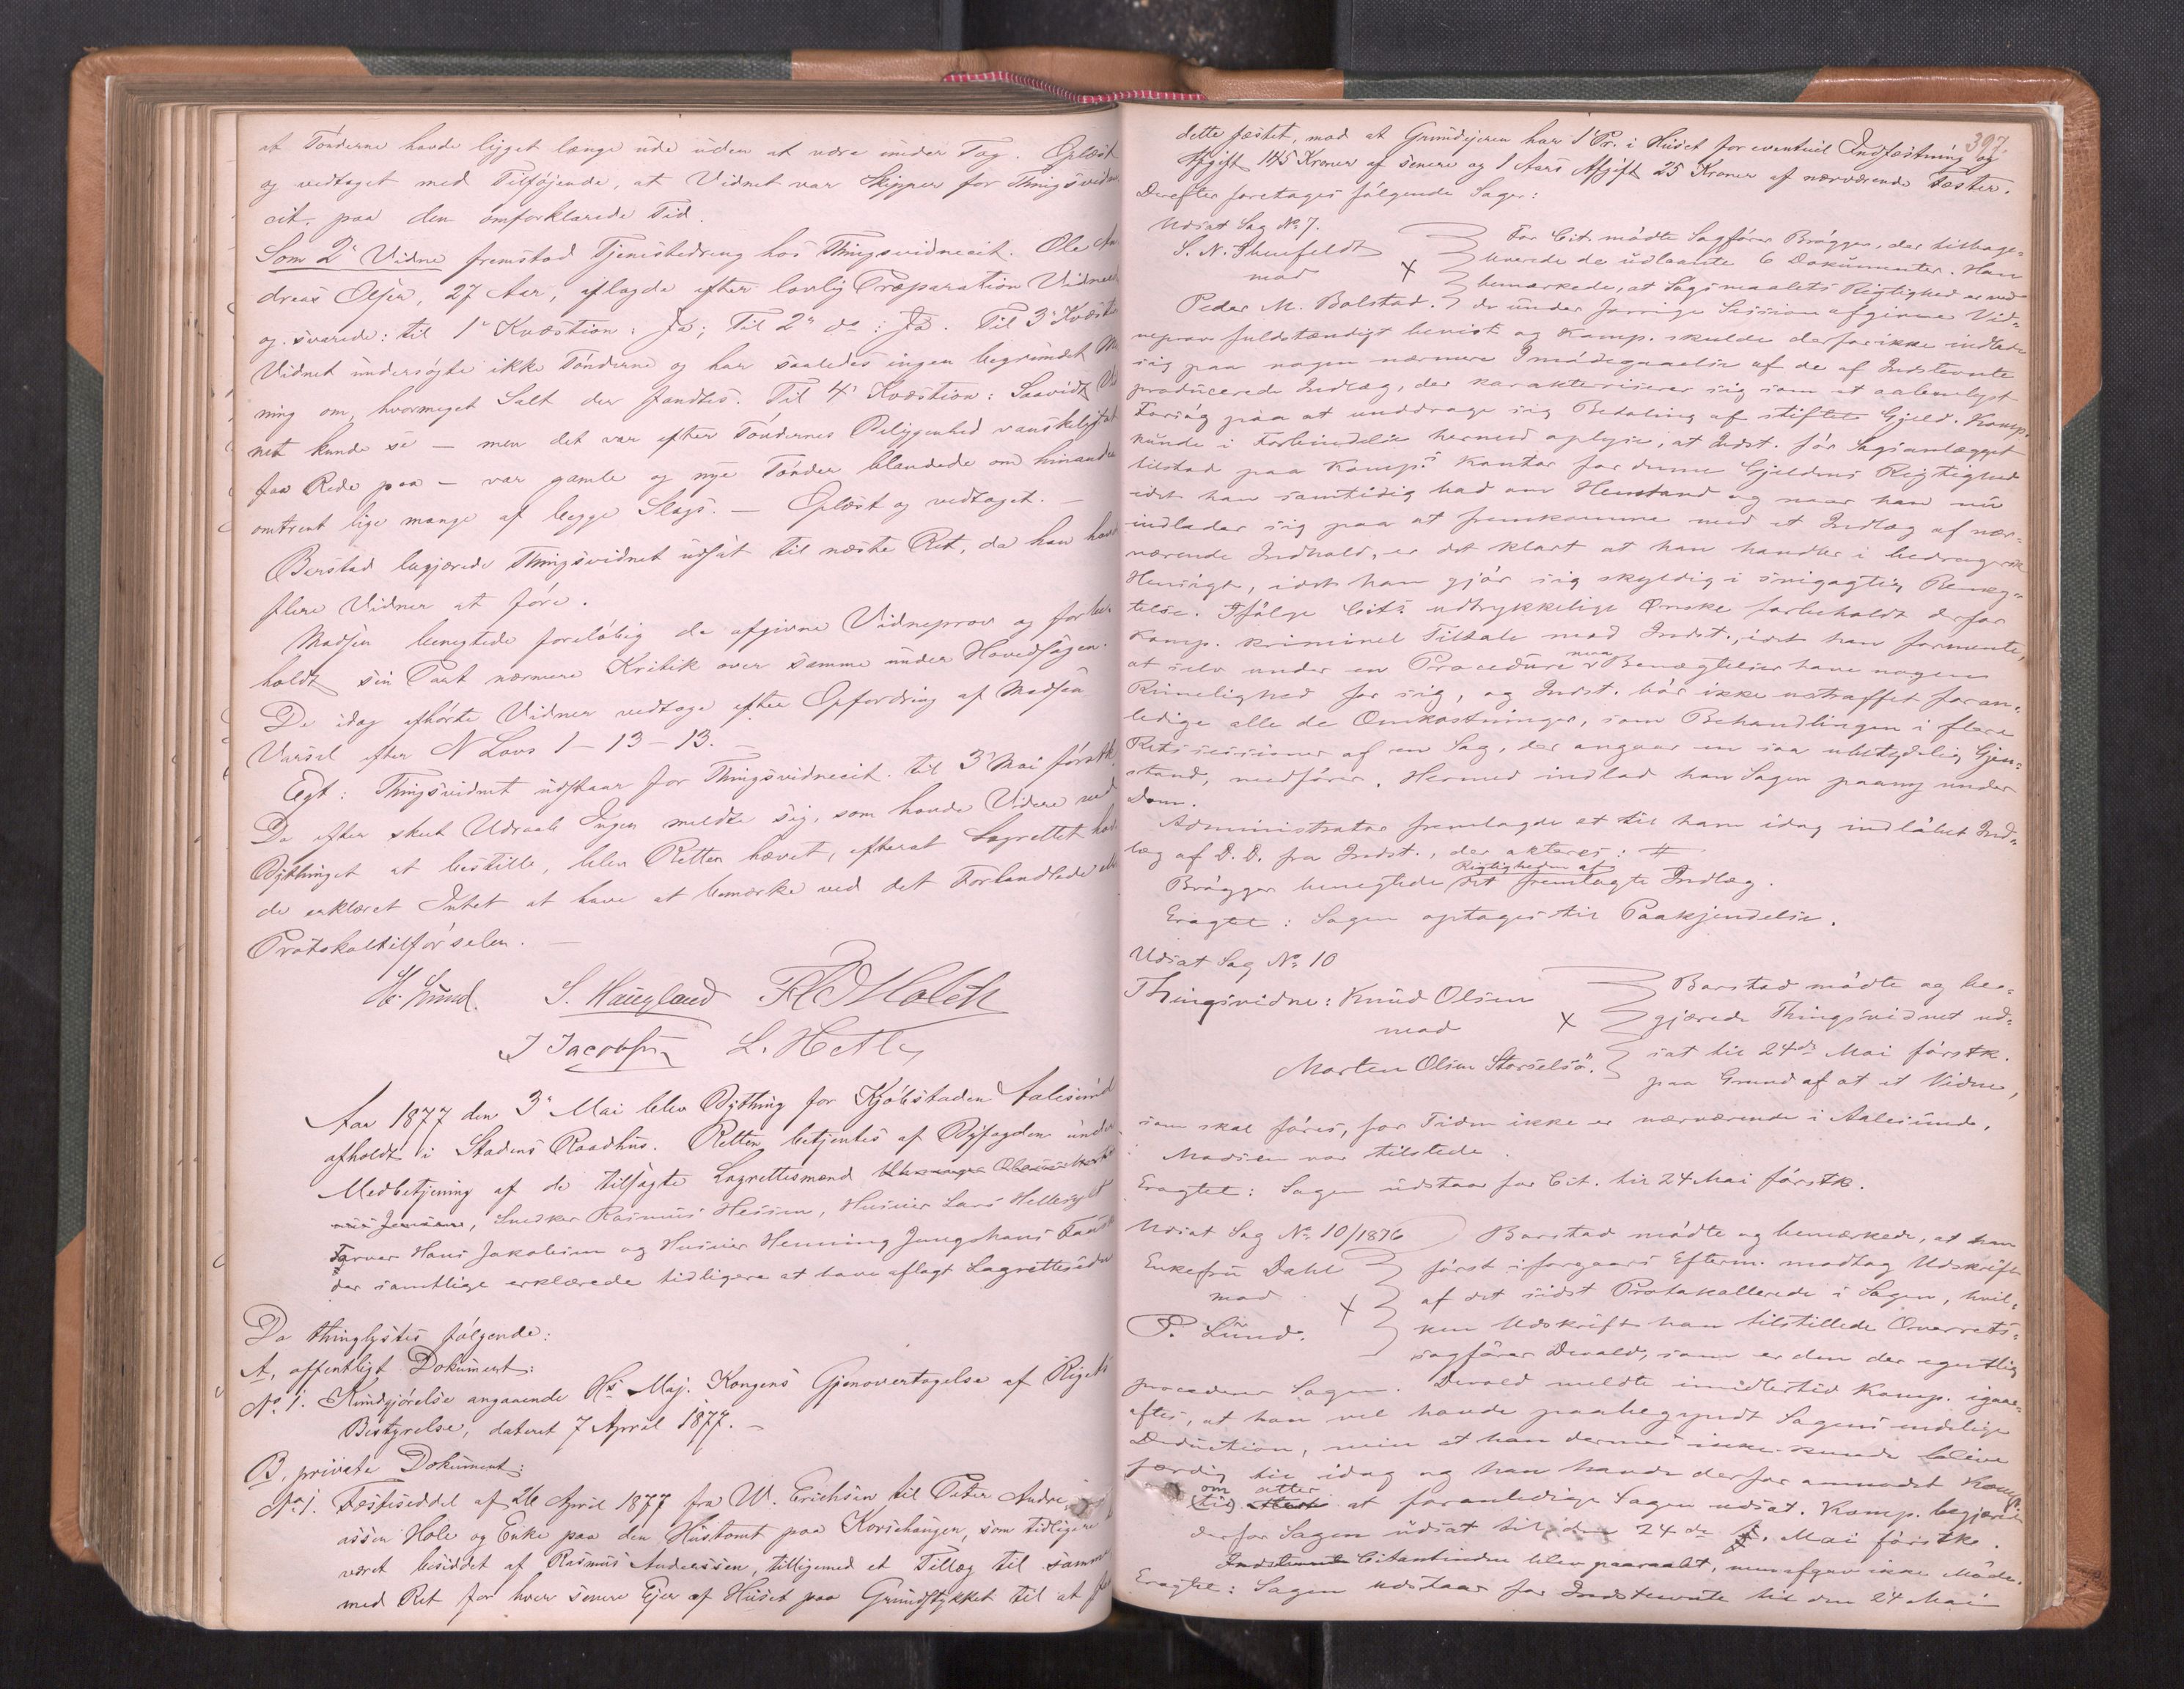 at Tönderne havde ligget længe ude uden at være under Tag. Oplæst
og vedtaget med Tilföjende, at Vidnet var Skipper for Thingsvidne
cit. paa den omforklarede Tid.
Som 2' Vidne fremstod Tjenestedreng hos Thingsvidnecit. Ole An
dreas Olsen, 27 Aar, aflagde efter lovlig Præparation Vidneed
og svarede: til 1' Kvæstion: Ja; Til 2' do: Ja. Til 3' Kvæstion
Vidnet undersögte ikke Tönderne og har saaledes ingen begrundet Me
ning om, hvormeget Salt der fandtes. Til 4' Kvæstion: Saavidt Vid
net kunde se – men det var efter Töndernes Beliggenhed vanskeligt at
faa Rede paa – var gamle og nye Tönder blandede om hinanden
omtrent lige mange af begge Slags. – Oplæst og vedtaget. –
Barstad begjærede Thingsvidnet udsat til næste Ret, da han havde
flere Vidner at före.
Madsen benegtede forelöbig de afgivne Vidneprov og forbe
holdt sin Part nærmere Kritik over samme under Hovedsagen.
De idag afhörte Vidner vedtage efter Opfordring af Madsen
Varsel efter N Lovs 1–13–13. –
Egt: Thingsvidnet udstaar for Thingsvidnecit. til 3' Mai förstk.
Da efter skeet Udraab Ingen meldte sig, som havde Videre ved
Bythinget at bestille, blev Retten hævet, efterat Lagrettet hav
de erklæret Intet at have at bemærke ved det Forhandlede eller
Protokoltilförselen. –
H. Lund. S. Haugland
J Jacobsen L. Hetle
Aar 1877 den 3' Mai blev Bything for Kjöbstaden Aalesund
afholdt i Stadens Raadhus. Retten betjentes af Byfogden under
Medbetjening af de tilsagte Lagrettesmænd
Jensen, Snedker Rasmus Hessen, Huseier Lars Hellesylt
Farver Hans Jakobsen og Husier Henning Junghans
der samtlige erklærede tidligere at have aflagt Lagrettesed
Da thinglystes fölgende:
A, offentligt Dokument:
No 1. Kundgjörelse angaaende Hs Maj. Kongens Gjenovertagelse af Rigets
Bestyrelse, dateret 7 April 1877. –
B, private Dokument:
No 1. Festeseddel af 26 April 1877 fra W. Erichsen til Peter Andre
assen Hole og Enke paa den Hustomt paa Korsehaugen, som tidligere
været besiddet af Rasmus Anderssen, tilligemed et Tillæg til samme
med Ret for hver senere Ejer af Huset paa Grundstykket til at f
397.
dette fæstet, mod at Grundejeren har 1' Pr. i Huset for eventuel Indfæstning og
Afgift 145 Kroner af senere og 1 Aars Afgift 25 Kroner af nærværende Fæster.
Derefter foretages fölgende Sager:
Udsat Sag No 7.
S. N. Thufeldt
mod
Peder M. Bolstad.
For Cit. mödte Sagförer Brögger, der tilbage=
leverede de udlaante 6 Dokumenter. Han
bemærkede, at Sagsmaalets Rigtighed er ved
de under forrige Session afgivne Vid=
neprov fuldstændigt bevist og Komp. skulde derfor ikke indlade
sig paa nogen nærmere Imödegaaelse af de af Indstevnte
producerede Indlæg, der karakteriserer sig som et aabenlyst
Forsög paa at unddrage sig Betaling af stiftet Gjeld. Komp.
kunde i Forbindelse hermed oplyse, at Indst. för Sagsanlægget
tilstod paa Komps Kontor for denne Gjeldens Rigtighed
idet han samtidig bad om Henstand og naar han nu
indlader sig paa at fremkomme med et Indlæg af nær=
værende Indhold, er det klart at han handler i bedragersk
Hensigt, idet han gjör sig skyldig i svigagtig Benæg=
telse. Ifölge Cits udtrykkelige Önske forbeholdt derfor
Komp. kriminel Tiltale mod Indst., idet han formente,
at selv under en Procedure maa Benægtelser have nogen
Rimelighed for sig, og Indst. bör ikke ustraffet foran=
ledige alle de Omkostninger, som Behandlingen i flere
Retssessioner af en Sag, der angaar en saa ubetydelig Gjen=
stand, medförer. Hermed indlod han Sagen paany under
Dom.
Administrator fremlagde et til ham idag indlöbet Ind=
læg af D. D. fra Indst., der akteres: #
Brögger benegtede Rigtigheden af det fremlagte Indlæg.
Eragtet: Sagen optages til Paakjendelse.
Udsat Sag No 10
Thingsvidne: Knud Olsen
mod
Morten Olsen Storselsö.
Barstad mödte og be=
gjærede Thingsvidnet ud=
sat til 24de Mai förstk.
paa Grund af at et Vidne,
som skal föres, for Tiden ikke er nærværende i Aalesund.
Madsen var tilstede.
Eragtet: Sagen udstaar for Cit. til 24 Mai förstk.
Udsat Sag No 10/1876
Enkefru Dahl
mod
P. Lund.
Barstad mödte og bemærkede, at han
först iforgaars Efterm. modtog Udskrift
af det sidst Protokollerede i Sagen, hvil=
ken Udskrift han tilstillede Overrets=
sagförer Devold, som er den der egentlig
procederer Sagen. Devold meldte imidlertid Komp. igaar=
aftes, at han vel havde paabegyndt Sagens endelige
Deduction, men at han dermed ikke kunde blive
færdig til idag og han havde derfor anmodet Komp.
om atter at foranledige Sagen udsat. Komp. begjærede
derfor Sagen udsat til den 24de Mai förstk.
Indstevnte Citantinden blev paaraabt, men afgav ikke Möde.
Eragtet: Sagen udstaar for Indstevnte til den 24 Mai